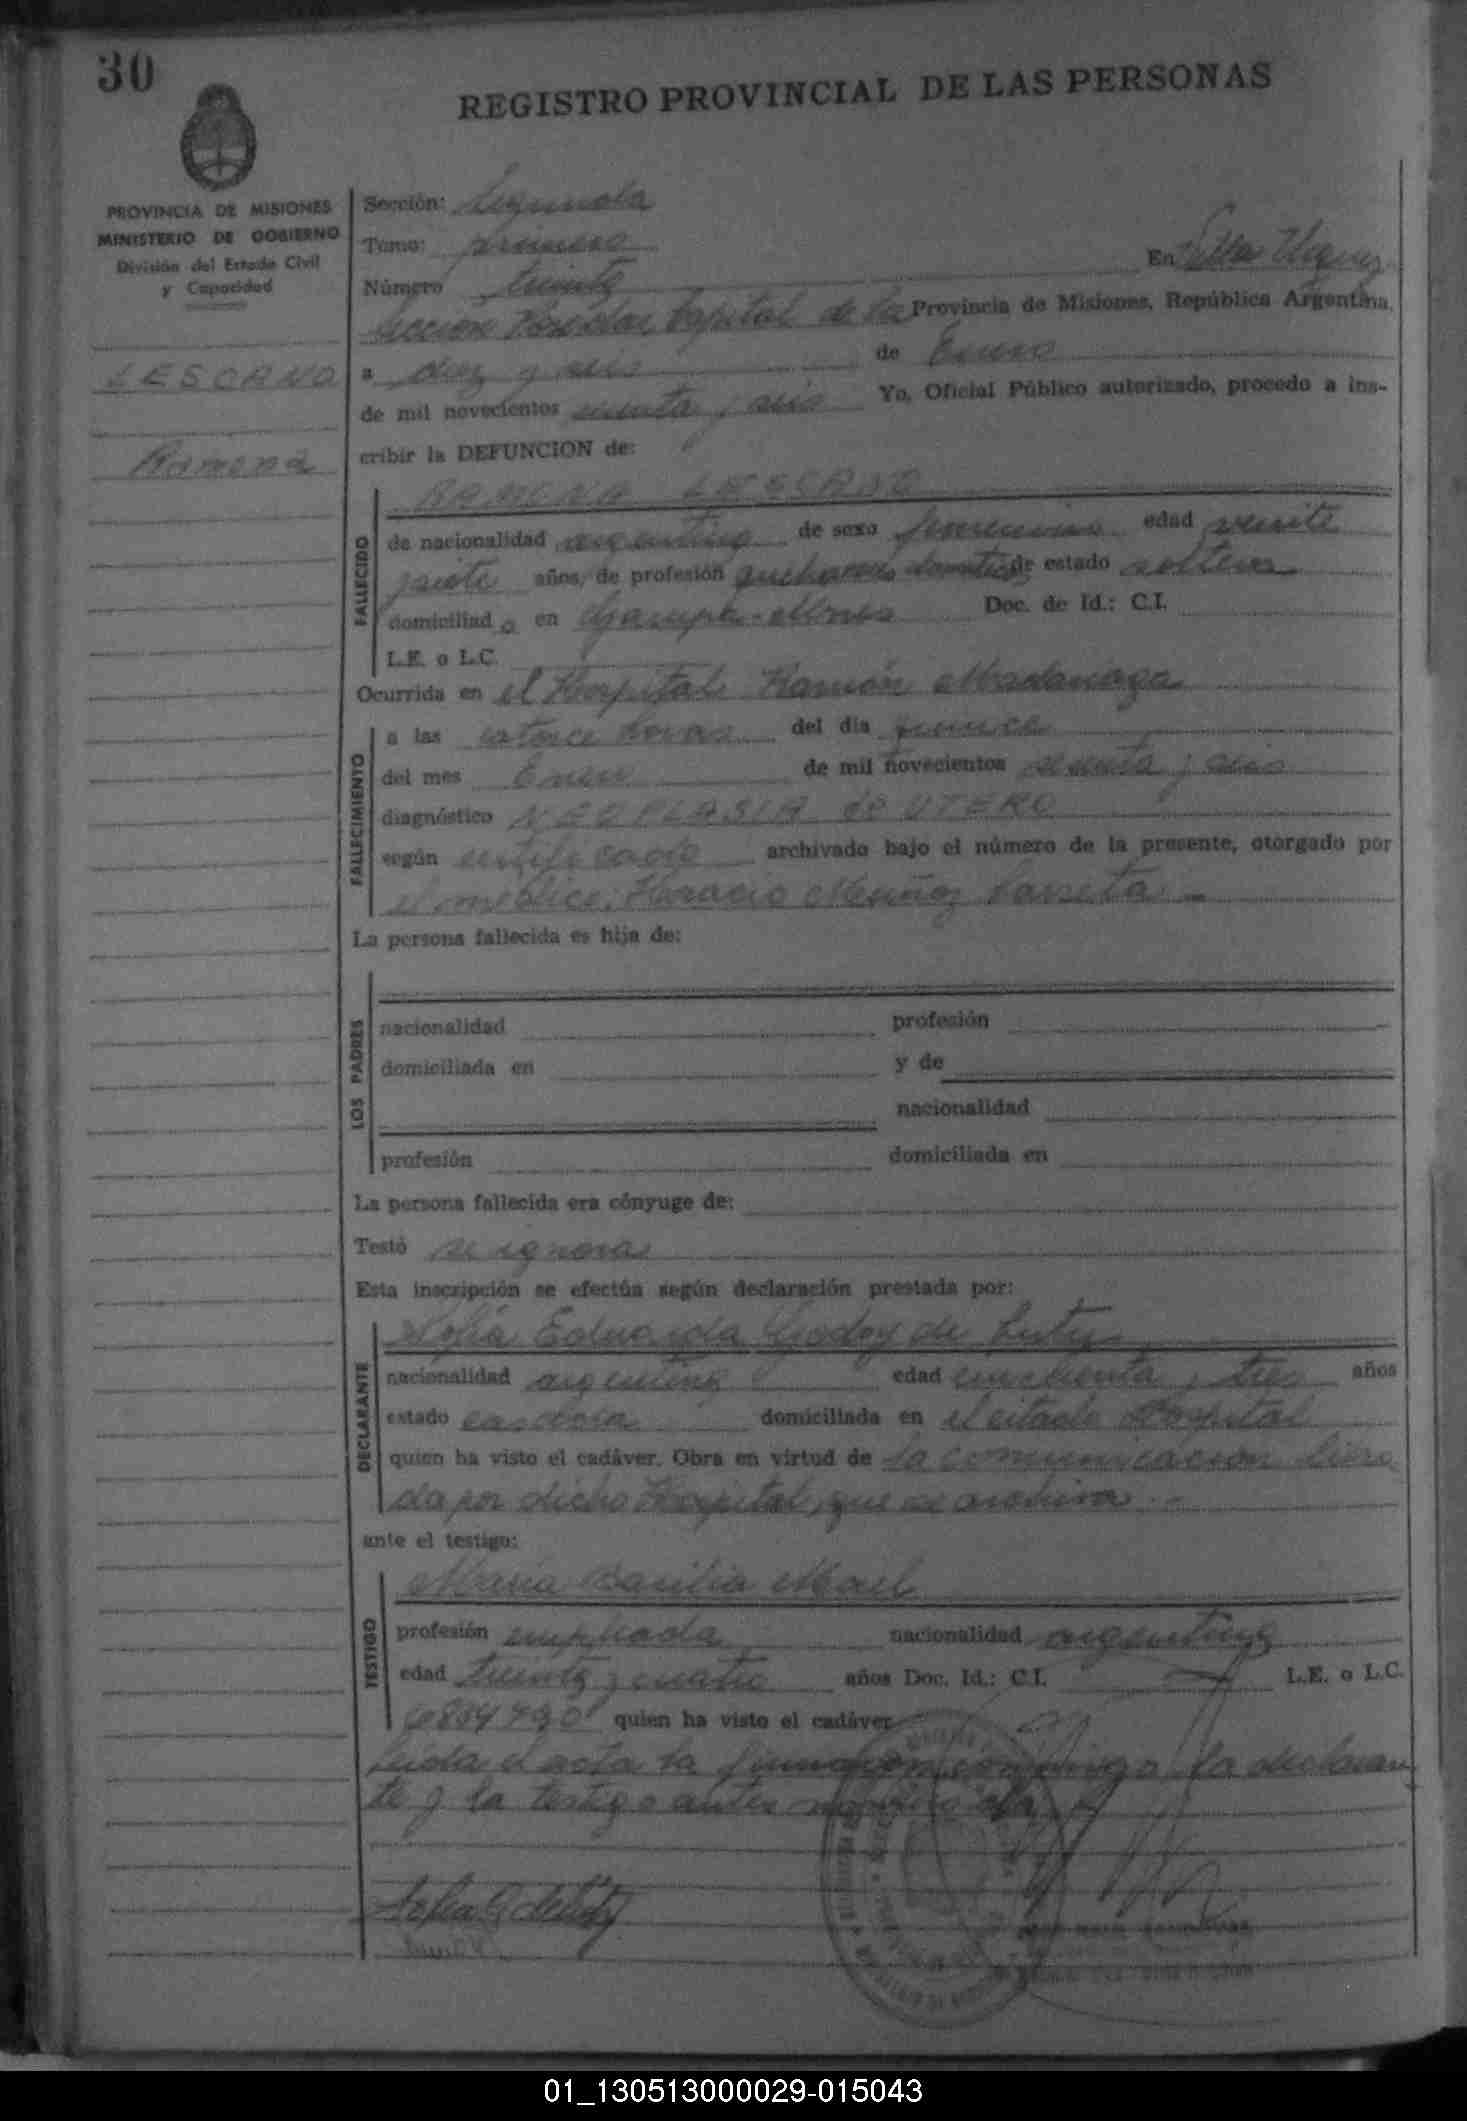 30
REGISTRO PROVINCIAL DE LAS PERSONAS
PROVINCIA DE MISIONES
MINISTERIO DE GOBIERNO
División del Estado Civil
y Capacidad
LESCANO
Ramona
Sección: Segunda
Tomo: primero
Número treinta
En Villa Urquiza
Sección Capital de la Provincia de Misiones, República Argentina,
a diez y seis de Enero
de mil novecientos setenta y seis Yo, Oficial Público autorizado, procedo a ins-
cribir la DEFUNCION de:
FALLECIDO
RAMONA LESCANO
de nacionalidad argentina de sexo femenino edad veinte
siete años, de profesión quehaceres domésticos de estado soltera
domiciliad a en Garupá - Mnes Doc. de Id.: C.I.
L.E. o L.C.
Ocurrida en el Hospital Ramón Madariaga
FALLECIMIENTO
a las catorce horas del día quince
del mes Enero de mil novecientos setenta y seis
diagnóstico NEOPLASIA de UTERO
según certificado archivado bajo el número de la presente, otorgado por
el médico: Horacio Muñoz Larreta -
La persona fallecida es hija de:
LOS PADRES
nacionalidad profesión
domiciliada en y de
nacionalidad
profesión domiciliada en
La persona fallecida era cónyuge de:
Testó se ignora
Esta inscripción se efectúa según declaración prestada por:
DECLARANTE
Sofía Eduarda Godoy de
nacionalidad argentina edad cincuenta y tres años
estado casada domiciliada en el citado Hospital
quien ha visto el cadáver. Obra en virtud de la comunicación libra
da por dicho Hospital, que se archiva. -
ante el testigo:
TESTIGO
María Basilia
profesión empleada nacionalidad argentina
edad treinta y cuatro años Doc. Id.: C.I. L.E. o L.C.
quien ha visto el cadáver
Leída el acta la firman conmigo la declaran
te y la testigo antes
01_130513000029-015043